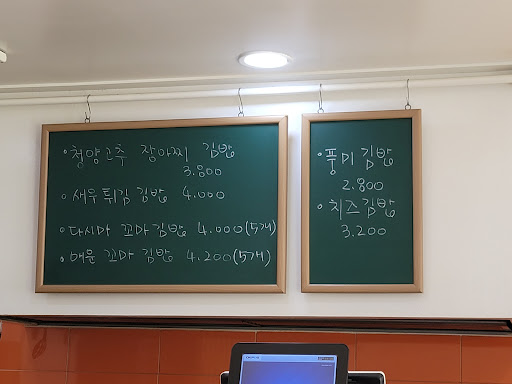 • 청양고추 장아찌 김밥
3.800
• 새우튀김 김밥 4.000
• 다시마 꼬마김밥 4.000(5개)
• 매운 꼬마 김밥 4.200(5개)
• 풍미김밥
2.800
• 치즈김밥
3.200